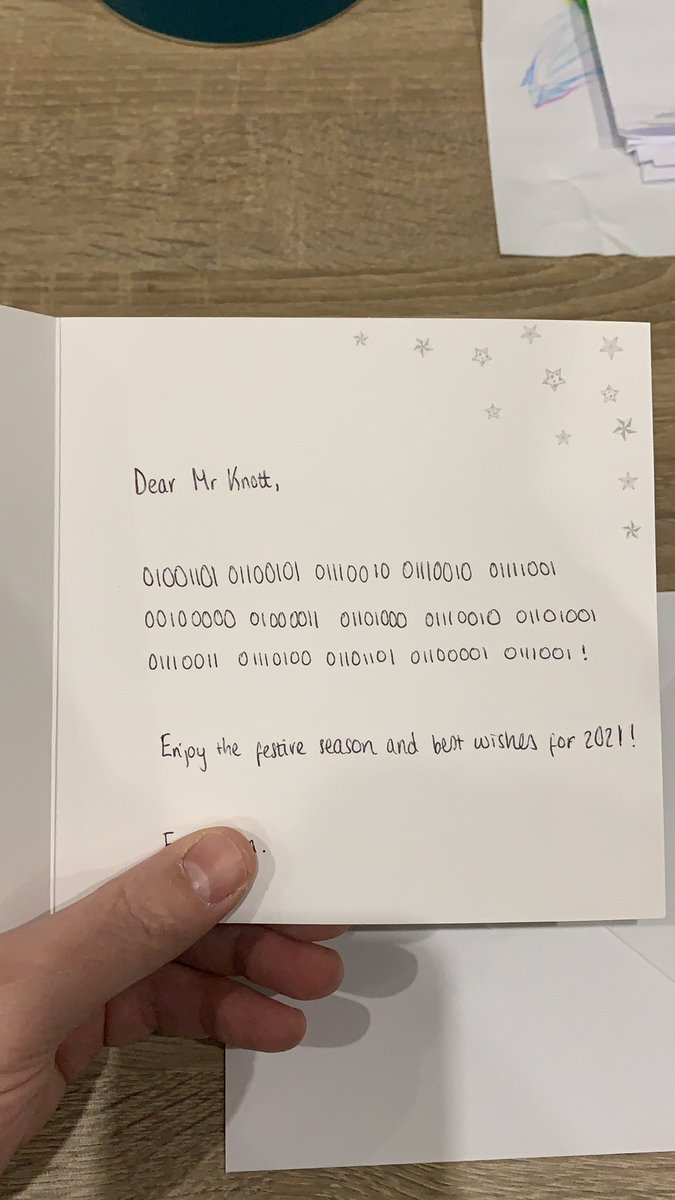 Dear Mr Knott,
01001101 01100101 01110010 01110010 01111001
00100000 01000011 01101000 01110010 01101001
01110011 01110100 01101101 01100001 0111001 !
Enjoy the festive season and best wishes for 2021!